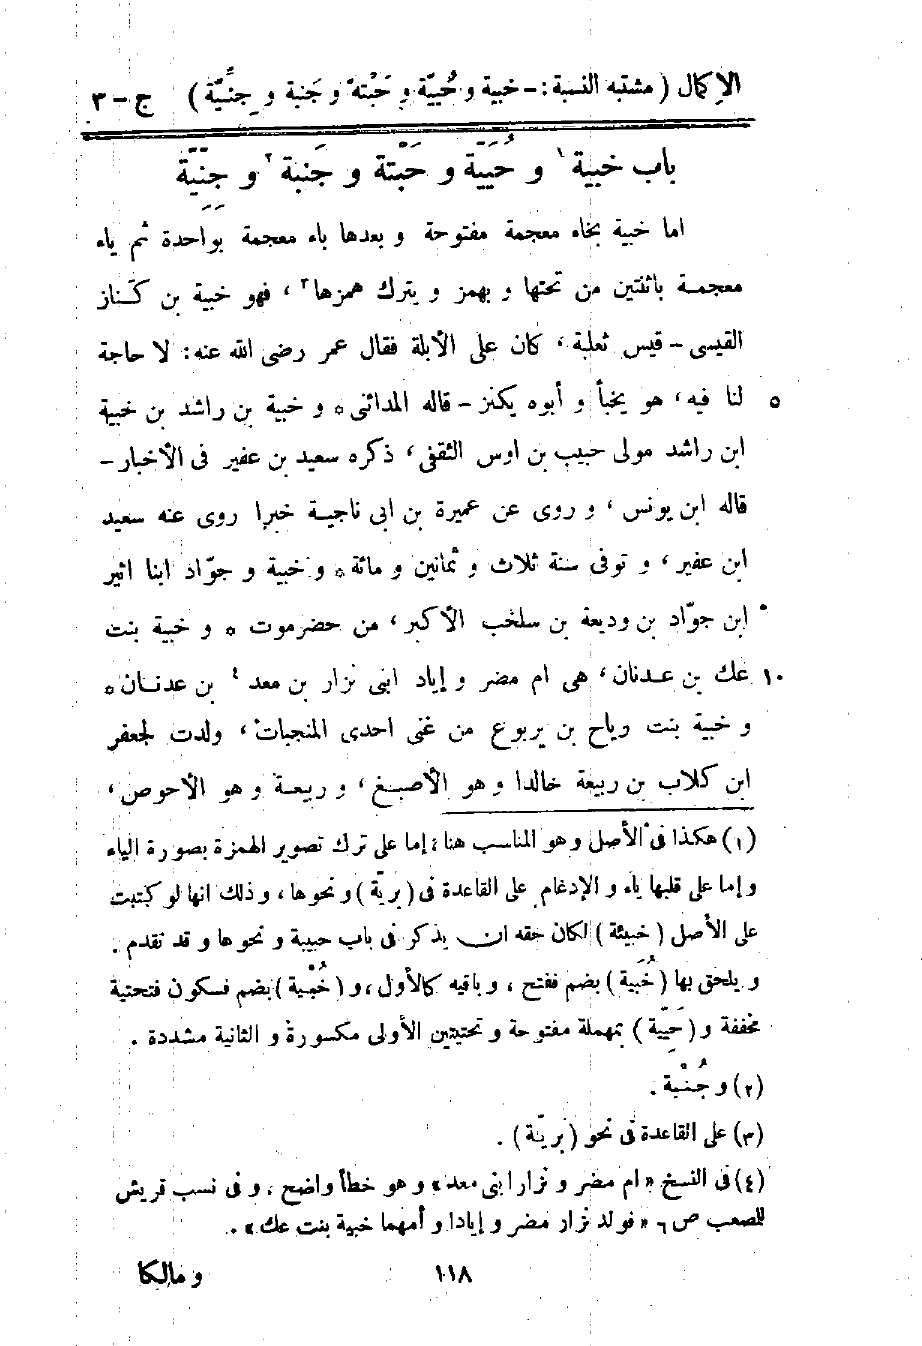 الإكمال ( مشتبه النسبة : – خبية و حُيَيّة و حَبْتة و جَنبة و جِنِّيّة ) ج – ٣
باب خبية ١ و حُيَيّة و حَبْتة و جَنبة ٢ و جِنِّيَّة
اما خبية بخاء معجمة مفتوحة و بعدها باء معجمة بواحدة ثم ياء
معجمة باثنتين من تحتها و يهمز و يترك همزها ٣ ، فهو خبية بن كنّاز
القيسى – قيس ثعلبة ، كان على الأبلة فقال عمر رضى الله عنه : لا حاجة
لنا فيه ، هو يخبأ و أبوه يكنز – قاله المدائنى ٥ و خبية بن راشد بن خبية ٥
ابن راشد مولى حبيب بن اوس الثقفى ، ذكره سعيد بن عفير فى الأخبار –
قاله ابن يونس ، و روى عن عميرة بن ابى ناجية خبرا روى عنه سعيد
ابن عفير ، و توفى سنة ثلاث و ثمانين و مائة ٥ و خبية و جوّاد ابنا اثير
ابن جوّاد بن وديعة بن سلخب الأكبر ، من حضرموت ٥ و خبية بنت
عك بن عدنان ، هى ام مضر و إياد ابنى نزار بن معد ٤ بن عدنان ٥ ١٠
و خبية بنت رياح بن يربوع من غنى احدى المنجبات ، ولدت لجعفر
ابن كلاب بن ربيعة خالدا و هو الأصبغ ، و ربيعة و هو الأحوص ،
(١) هكذا فى الأصل و هو المناسب هنا ؛ إما على ترك تصوير الهمزة بصورة الياء
و إما على قلبها ياء و الإدغام على القاعدة فى ( بريّة ) و نحوها ، و ذلك انها لو كتبت
على الأصل ( خبيئة ) لكان حقه ان يذكر فى باب حبيبة و نحوها و قد تقدم .
و يلحق بها ( خُبَية ) بضم ففتح ، و باقيه كالأول ، و ( خُبْية ) بضم فسكون فتحتية
مخففة و ( حَيِيّة ) بمهملة مفتوحة و تحتيتين الأولى مكسورة و الثانية مشددة .
(٢) و جُنْبة .
(٣) على القاعدة فى نحو ( بريّة ) .
(٤) فى النسخ « ام مضر و نزار ابنى معد » و هو خطأ واضح ، و فى نسب قريش
للمصعب ص ٦ « فولد نزار مضر و إيادا و أمهما خبية بنت عك » .
١١٨ و مالكا